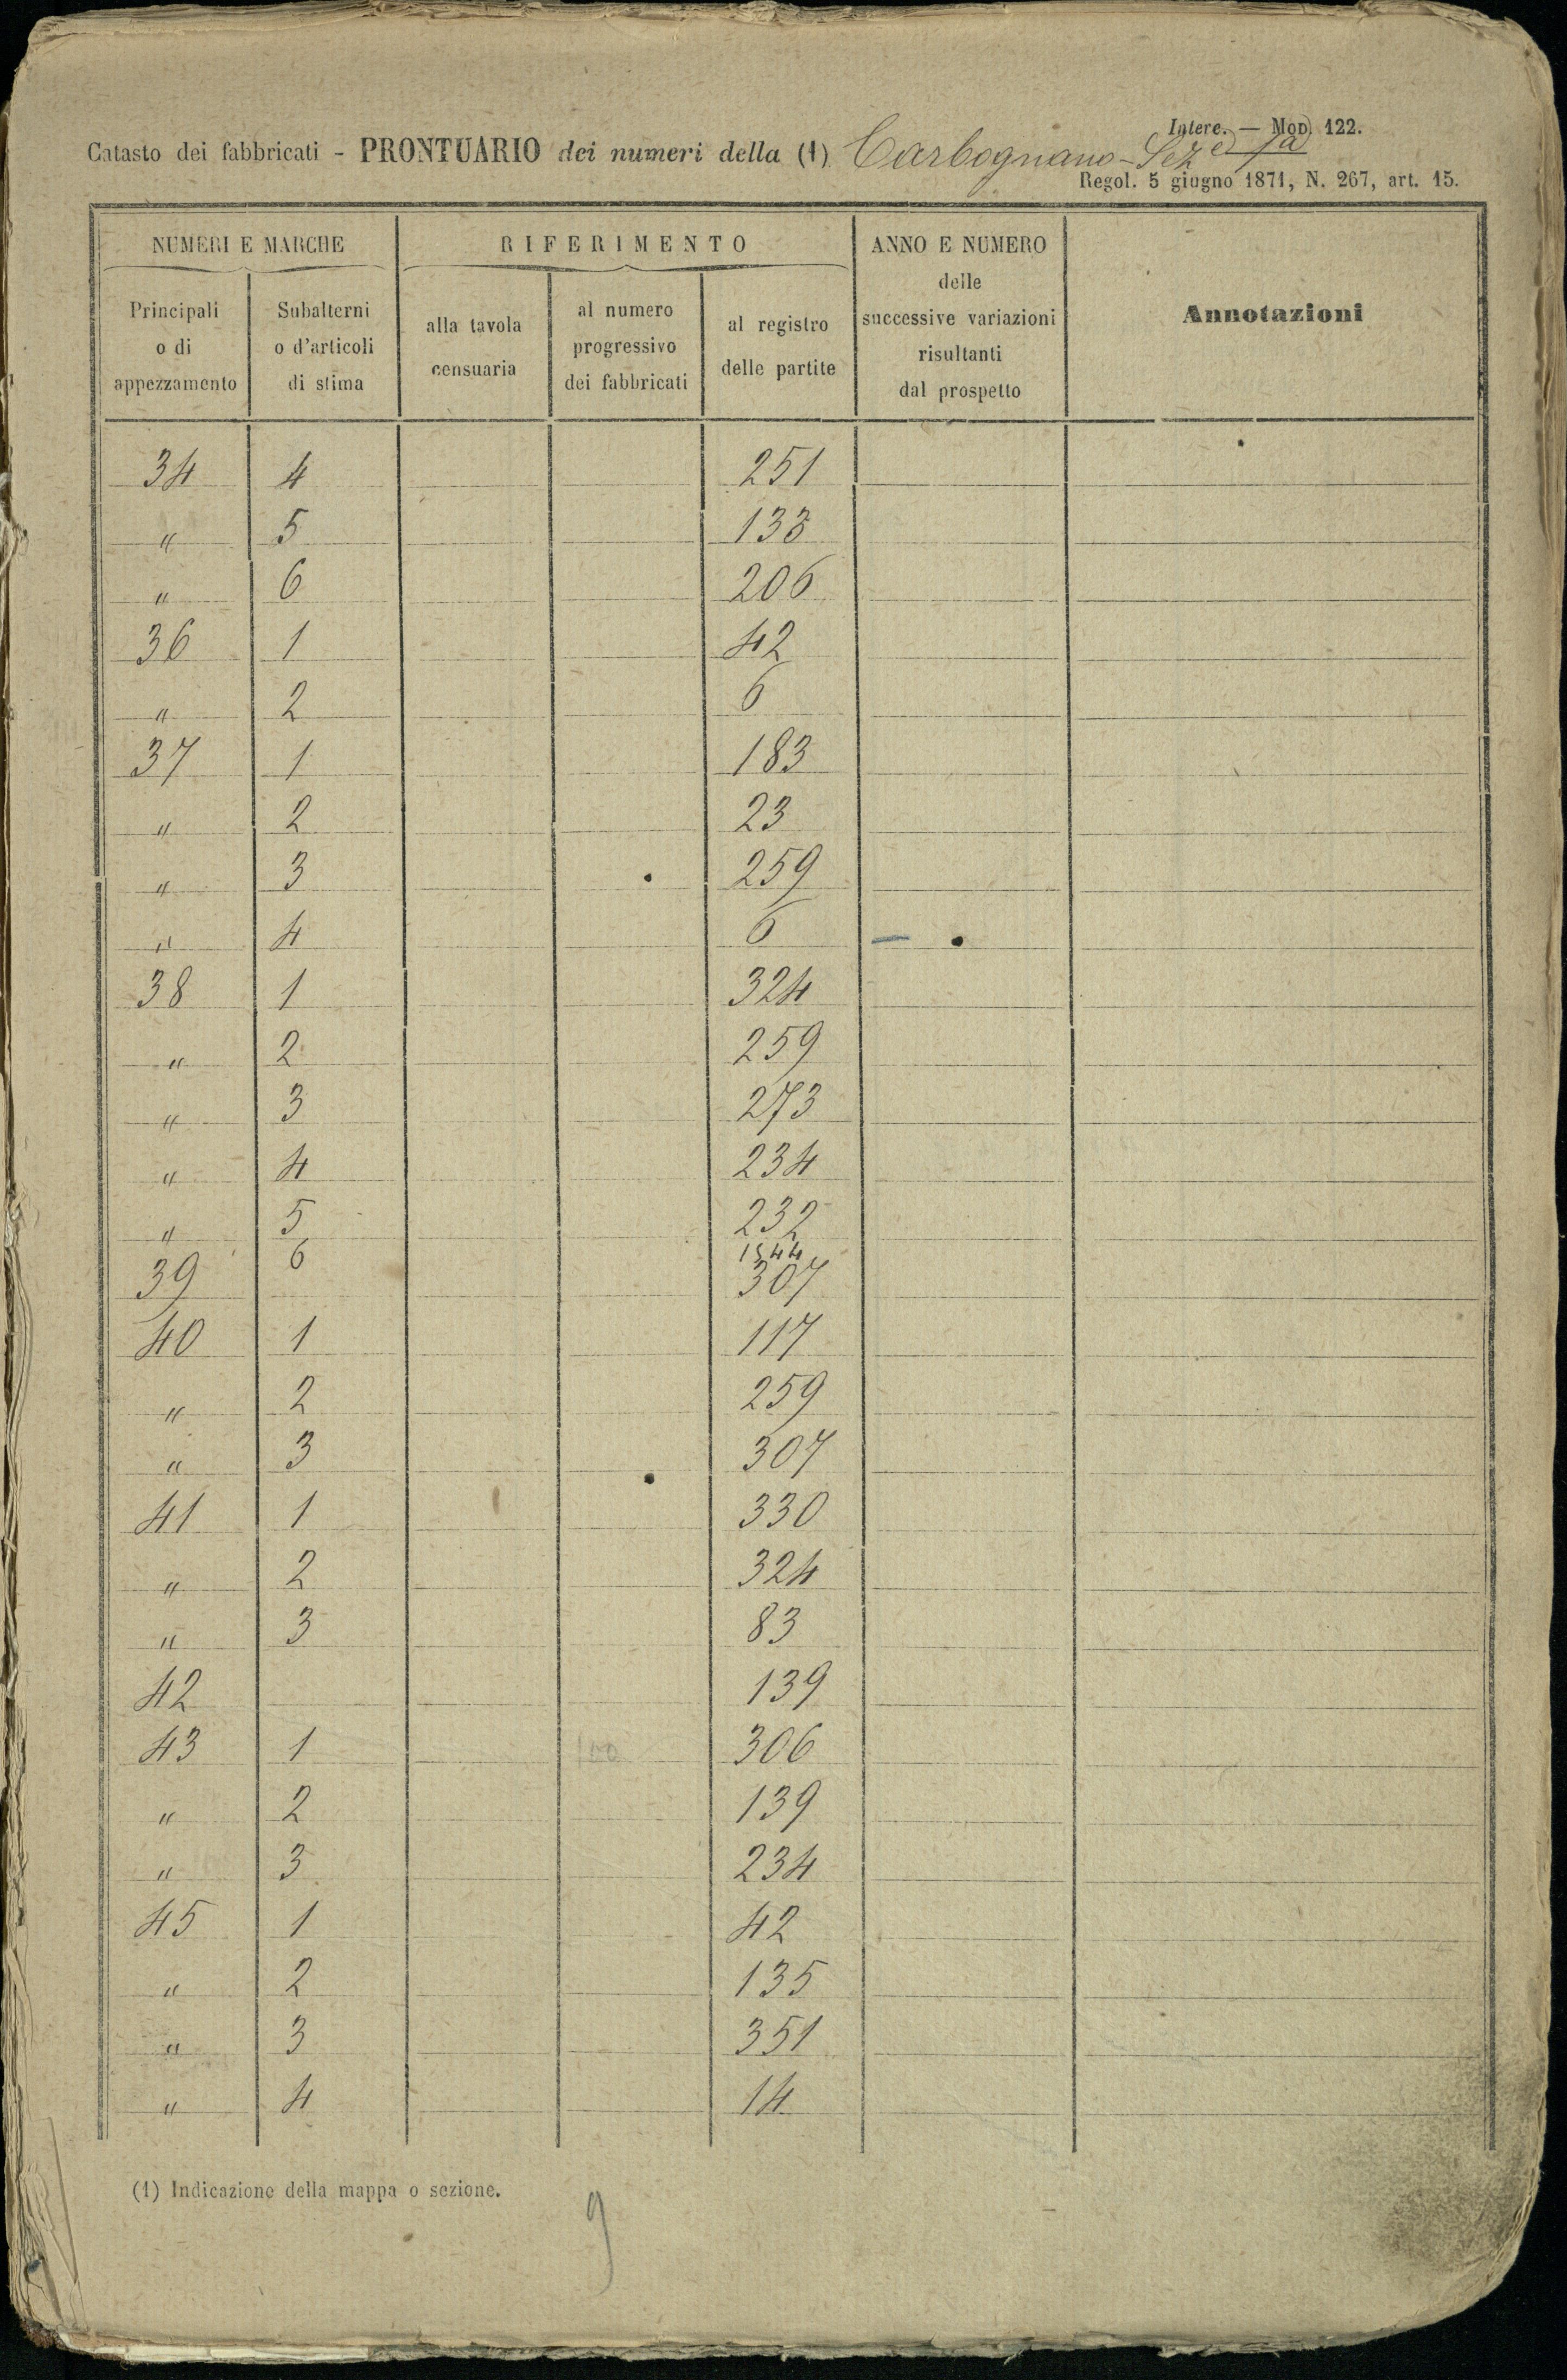 Interc. — Mod. 122.
Catasto dei fabbricati - PRONTUARIO dei numeri della (1) Carbognano - Sez
Regol. 5 giugno 1871, N. 267, art. 15.
NUMERI E MARCHE RIFERIMENTO ANNO E NUMERO delle successive variazioni risultanti dal prospetto Annotazioni
Principali o di appezzamento Subalterni o d'articoli di stima alla tavola censuaria al numero progressivo dei fabbricati al registro delle partite
34 4 251
" 5 133
" 6 206
36 1 42
" 2 6
37 1 183
" 2 23
" 3 259
" 4 6 —
38 1 324
" 2 259
" 3 273
" 4 234
" 5 232
6 1544
39 307
40 1 117
" 2 259
" 3 307
41 1 330
" 2 324
" 3 83
42 139
43 1 306
" 2 139
" 3 234
45 1 42
" 2 135
" 3 351
" 4 14
(1) Indicazione della mappa o sezione.
9